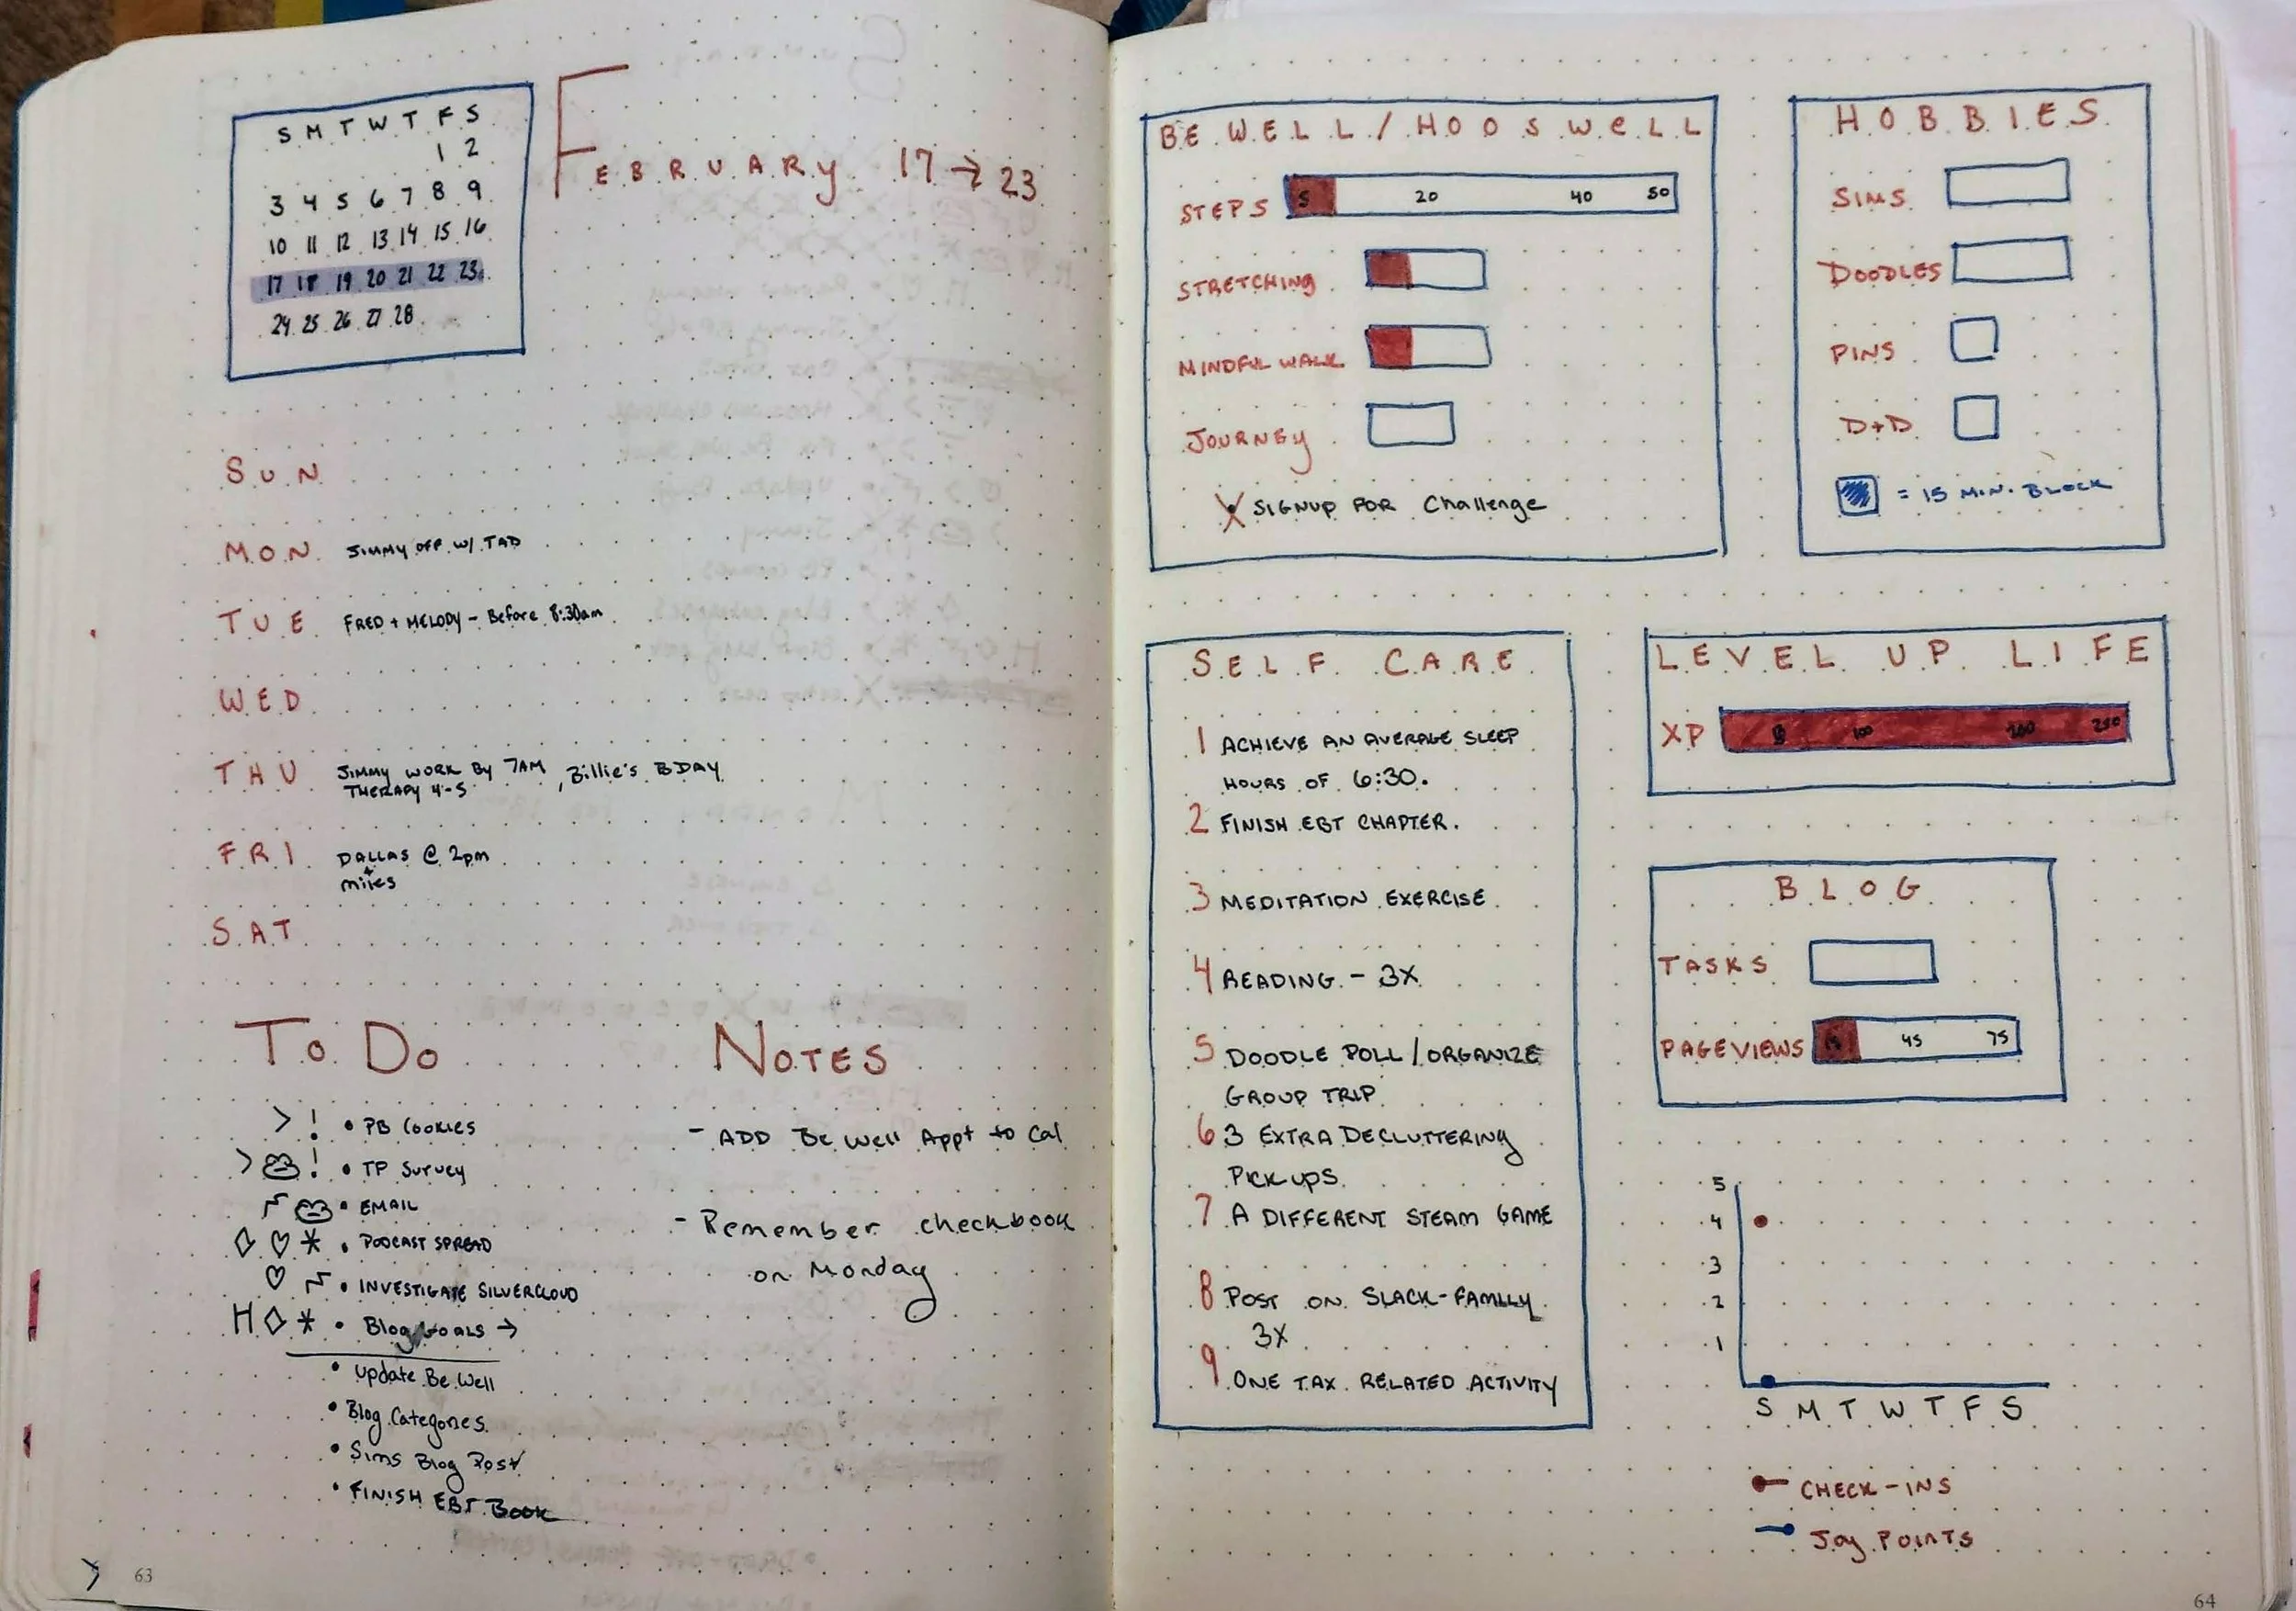 S M T W T F S
1 2
3 4 5 6 7 8 9
10 11 12 13 14 15 16
17 18 19 20 21 22 23
24 25 26 27 28
FEBRUARY 17 → 23
SUN
MON JIMMY OFF W/ TAD
TUE FRED + MELODY - Before 8:30am
WED
THU JIMMY WORK By 7AM, Billie's BDAY
THERAPY 4-5
FRI DALLAS @ 2pm
+
miles
SAT
TO DO
> ! • PB COOKIES
> ! • TP Survey
• EMAIL
◇ ♡ * • PODCAST SPREAD
♡ • INVESTIGATE SILVERCLOUD
H ◇ * • Blog GOALS →
• Update Be Well
• Blog Categories
• Sims Blog Post
• FINISH EBT Book
NOTES
- ADD Be Well Appt to Cal
- Remember checkbook
on Monday
63
BE WELL / HOOS WELL
STEPS 5 20 40 50
STRETCHING
MINDFUL WALK
JOURNEY
X SIGNUP FOR Challenge
HOBBIES
SIMS
DOODLES
PINS
D+D
= 15 MIN. BLOCK
SELF CARE
1 ACHIEVE AN AVERAGE SLEEP
HOURS OF 6:30.
2 FINISH EBT CHAPTER.
3 MEDITATION EXERCISE
4 READING - 3X
5 DOODLE POLL / ORGANIZE
GROUP TRIP
6 3 EXTRA DECLUTTERING
PICKUPS
7 A DIFFERENT STEAM GAME
8 POST ON SLACK-FAMILY
3X
9 ONE TAX RELATED ACTIVITY
LEVEL UP LIFE
XP 100 200 250
BLOG
TASKS
PAGEVIEWS 15 45 75
5
4
3
2
1
S M T W T F S
CHECK-INS
Joy POINTS
64